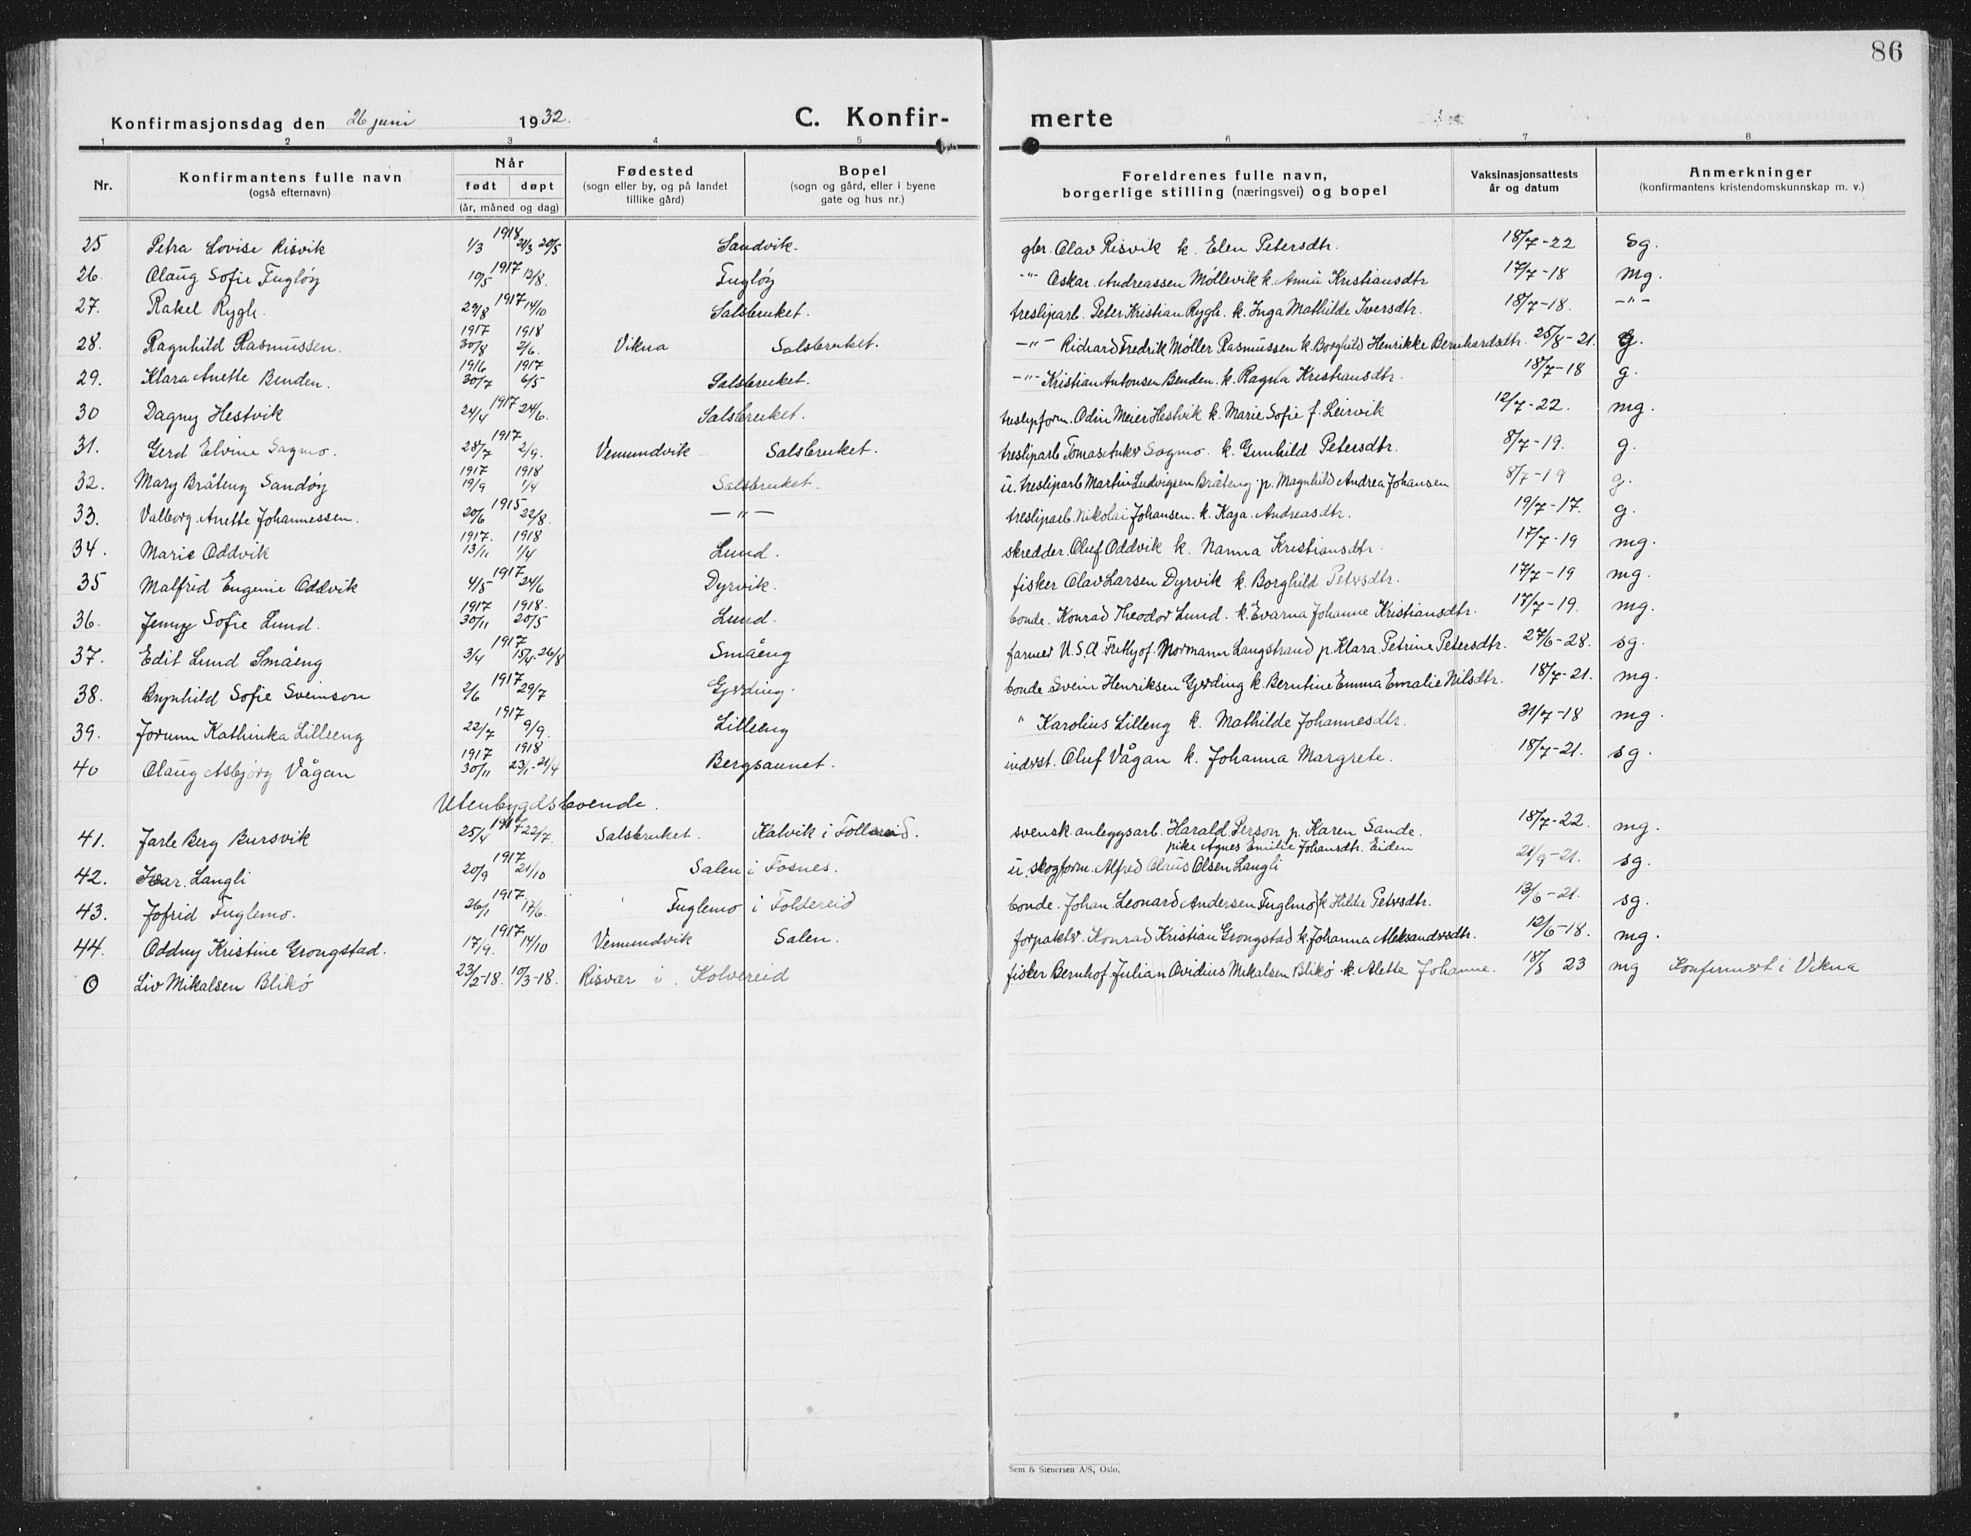 86
Konfirmasjonsdag den 26 juni 1932. C. Konfir- merte
1 2 3 4 5 6 7 8
Nr. Konfirmantens fulle navn (også efternavn) Når født døpt (år, måned og dag) Fødested (sogn eller by, og på landet tillike gård) Bopel (sogn og gård, eller i byene gate og hus nr.) Foreldrenes fulle navn, borgerlige stilling (næringsvei) og bopel Vaksinasjonsattests år og datum Anmerkninger (konfirmantens kristendomskunnskap m. v.)
25 Petra Lovise Risvik 1918 1/3 21/3 20/5 Sandvik. gbr. Olav Risvik k. Elen Petersdtr. 18/7-22 sg.
26. Olaug Sofie Fugløy 1917 10/5 12/8. Fugløy -"- Oskar Andreassen Møllevik k. Anna Kristiansdtr 17/7-18 mg.
27. Rakel Rygh. 1917 29/8 14/10 Salsbruket. tresliparb. Peter Kristian Rygh. k. Inga Mathilde Iversdtr. 18/7-18. -"-
28. Ragnhild Rasmussen. 1917 30/8 1918 2/6. Vikna Salsbruket. -"- Richard Fredrik Møller Rasmussen k. Borghild Henrikke Bernhardsdtr. 25/8-21. g.
29. Klara Anette Benden. 1916 30/7 1917 6/5 Salsbruket. -"- Kristian Antonsen Benden. k. Ragna Kristiansdtr. 18/7-18 g.
30 Dagny Hestvik 1917 24/4 24/6. Salsbruket. treslipform. Odin Meier Hestvik k. Marie Sofie f. Leirvik 12/7-22. mg.
31. Gerd Elvine Sagmo. 1917 28/7 2/9. Vemundvik Salsbruket. tresliparb Tomas Anker Sagmo k. Gunhild Petersdtr. 8/7-19. g.
32. Mary Bråteng Sandøy 1917 19/9 1918 1/4 Salsbruket. u. tresliparb Martin Ludvigsen Bråteng p. Magnhild Andrea Johansen 8/7-19 g.
33. Valborg Anette Johannessen. 1915 20/6 22/8. -"- tresliparb. Nikolai Johansen. k. Kaja Andreasdtr. 19/7-17. g.
34. Marie Oddvik 1917. 13/11 1918 1/4 Lund. skredder. Oluf Oddvik k. Nanna Kristiansdtr. 17/7-19 mg.
35 Malfrid Eugenie Oddvik 1917 4/5 24/6 Dyrvik. fisker Olav Larsen Dyrvik k. Borghild Petersdtr. 17/7-19 mg.
36. Jenny Sofie Lund. 1917 30/11 1918. 20/5 Lund. bonde. Konrad Theodor Lund. k. Evarna Johanne Kristiansdtr. 17/7-19. mg.
37. Edit Lund Småeng 1917 3/4 15/4-26/8 Småeng farmer U.S.A Frithjof Normann Langstrand p. Klara Petrine Petersdtr. 27/6-28. sg.
38. Brynhild Sofie Sveinson 1917 2/6 29/7 Gjerding. bonde Svein Henriksen Gjerding k. Berntine Emma Emalie Nilsdtr. 18/7-21. mg.
39. Jorunn Kathinka Lilleeng 1917 22/7 9/9. Lilleng " Karolius Lilleng k. Mathilde Johannesdtr. 31/7-18 mg.
40 Olaug Asbjørg Vågan 1917 30/11 1918 23/1-21/4 Bergsaunet. inderst. Oluf Vågan k. Johanna Margrete. 18/7-21. sg.
Utenbygdsboende.
41. Jarle Berg Bursvik 1917 25/4 22/7. Salsbruket. Kalvik i Foldereid. svensk. anleggsarb. Harald Person p. Karen Sande. 18/7-22. mg.
42. Ivar Langli 1917 20/9 21/10 Salen i Fosnes. u. skogform. Alfred Olaus Olsen Langli pike Agnes Emilie Johansdtr. Eiden 21/9-21. sg.
43. Jofrid Fuglemo. 1917 26/1 17/6. Fuglemo i Foldereid bonde. Johan Leonard Andersen Fuglmo k Helda Petersdtr. 13/6-21. sg.
44. Oddny Kristine Grongstad. 1917 17/9. 14/10 Vemundvik Salen. forpakter. Konrad Kristian Grongstad k. Johanna Aleksandersdtr. 12/6-18. mg.
0 Liv Mikalsen Blikø 23/2-18. 10/3-18. Risvær i Kolvereid fisker Bernhof Julian Ovidius Mikalsen Blikø k. Alette Johanne. 18/3 23 mg Konfirmert i Vikna
Sem & Stenersen A/S, Oslo.